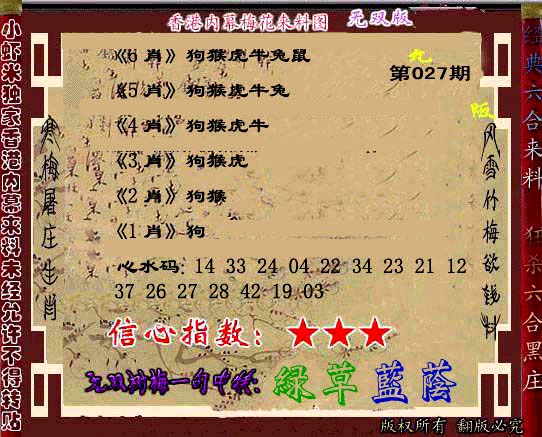 香港内幕梅花来料图 无双版
小虾米独家香港内幕来料未经允许不得转贴
经典六合来料 狂杀六合黑庄
《6 肖》狗猴虎牛兔鼠
第027期
《5 肖》狗猴虎牛兔
版
《4 肖》狗猴虎牛
寒梅屠庄生肖
风雪竹梅欲钱料
《3 肖》狗猴虎
《2 肖》狗猴
《1 肖》狗
心水码: 14 33 24 04 22 34 23 21 12
37 26 27 28 42 19 03
信心指数: ★★★
无双剑梅一句中特: 绿草蓝荫
版权所有 翻版必究